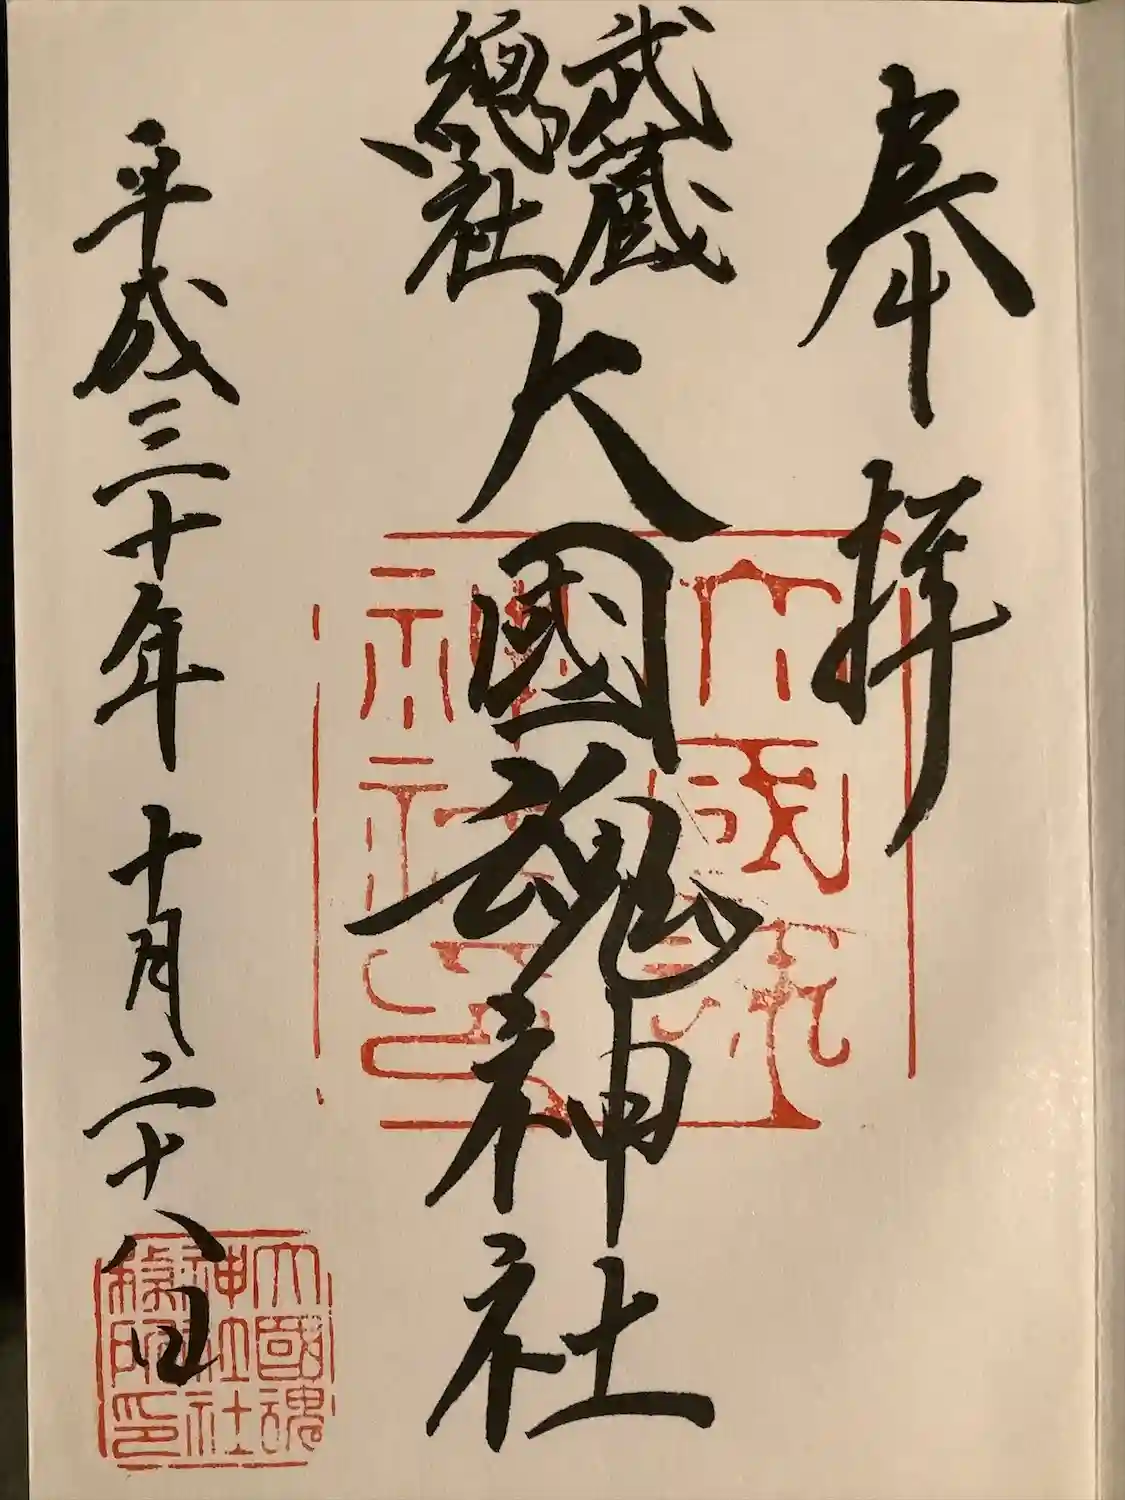 奉拝
武蔵
總社
大國魂神社
平成三十年 十月二十八日
大國魂
神社印
大國魂
神社社
務所印